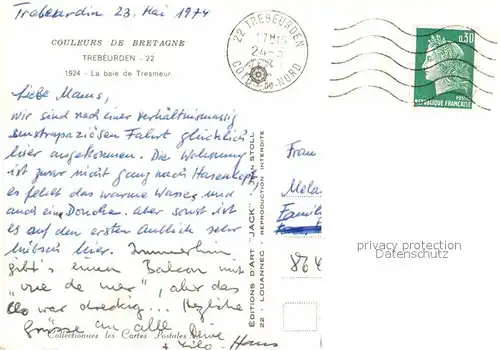 Trebeurden 23. Mai 1974
COULEURS DE BRETAGNE
TREBEURDEN - 22
1924 - La baie de Tresmeur
22 TREBEURDEN
17H
24-5
COTES-DU-NORD
0,30
POSTES
REPUBLIQUE FRANÇAISE
Liebe Mams,
wir sind nach einer verhältnismässig
Fahrt glücklich
hier angekommen. Die Wohnung
ist zwar nicht ganz nach
es fehlt das warme Wasser und
auch eine Douche. Aber sonst ist
es auf den ersten Anblick sehr
hübsch hier. Immerhin
gibt's einen Balcon mit
"vue de mer", aber das
Clo war dreckig... Herzliche
Grüsse an alle Deine
+ Hans
Collectionnez les Cartes Postales
EDITIONS D'ART "JACK" - JEAN STOLL
22 - LOUANNEC - REPRODUCTION INTERDITE
Frau
Mela
Famili
864
privacy protection
Datenschutz